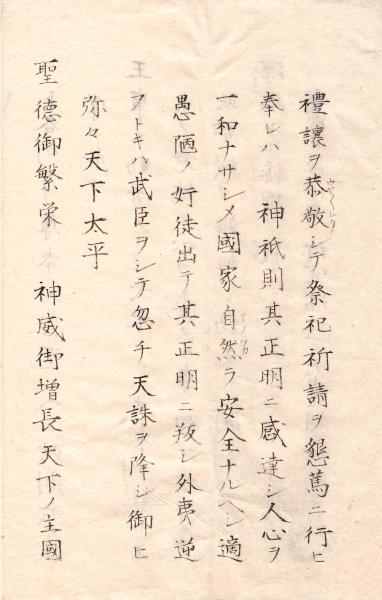 禮譲ヲ恭敬シテ祭祀祈請ヲ懇篤ニ行ヒ
奉レハ　神祇則其正明ニ感達シ人心ヲ
一和ナサシメ國家自然ラ安全ナルヘシ適
愚陋ノ奸徒出テ其正明ニ叛シ外夷逆
ヲトキハ武臣ヲシテ忽チ天誅ヲ降シ御ヒ
弥々天下太平
聖德御繁栄　神威御增長天下ノ主國